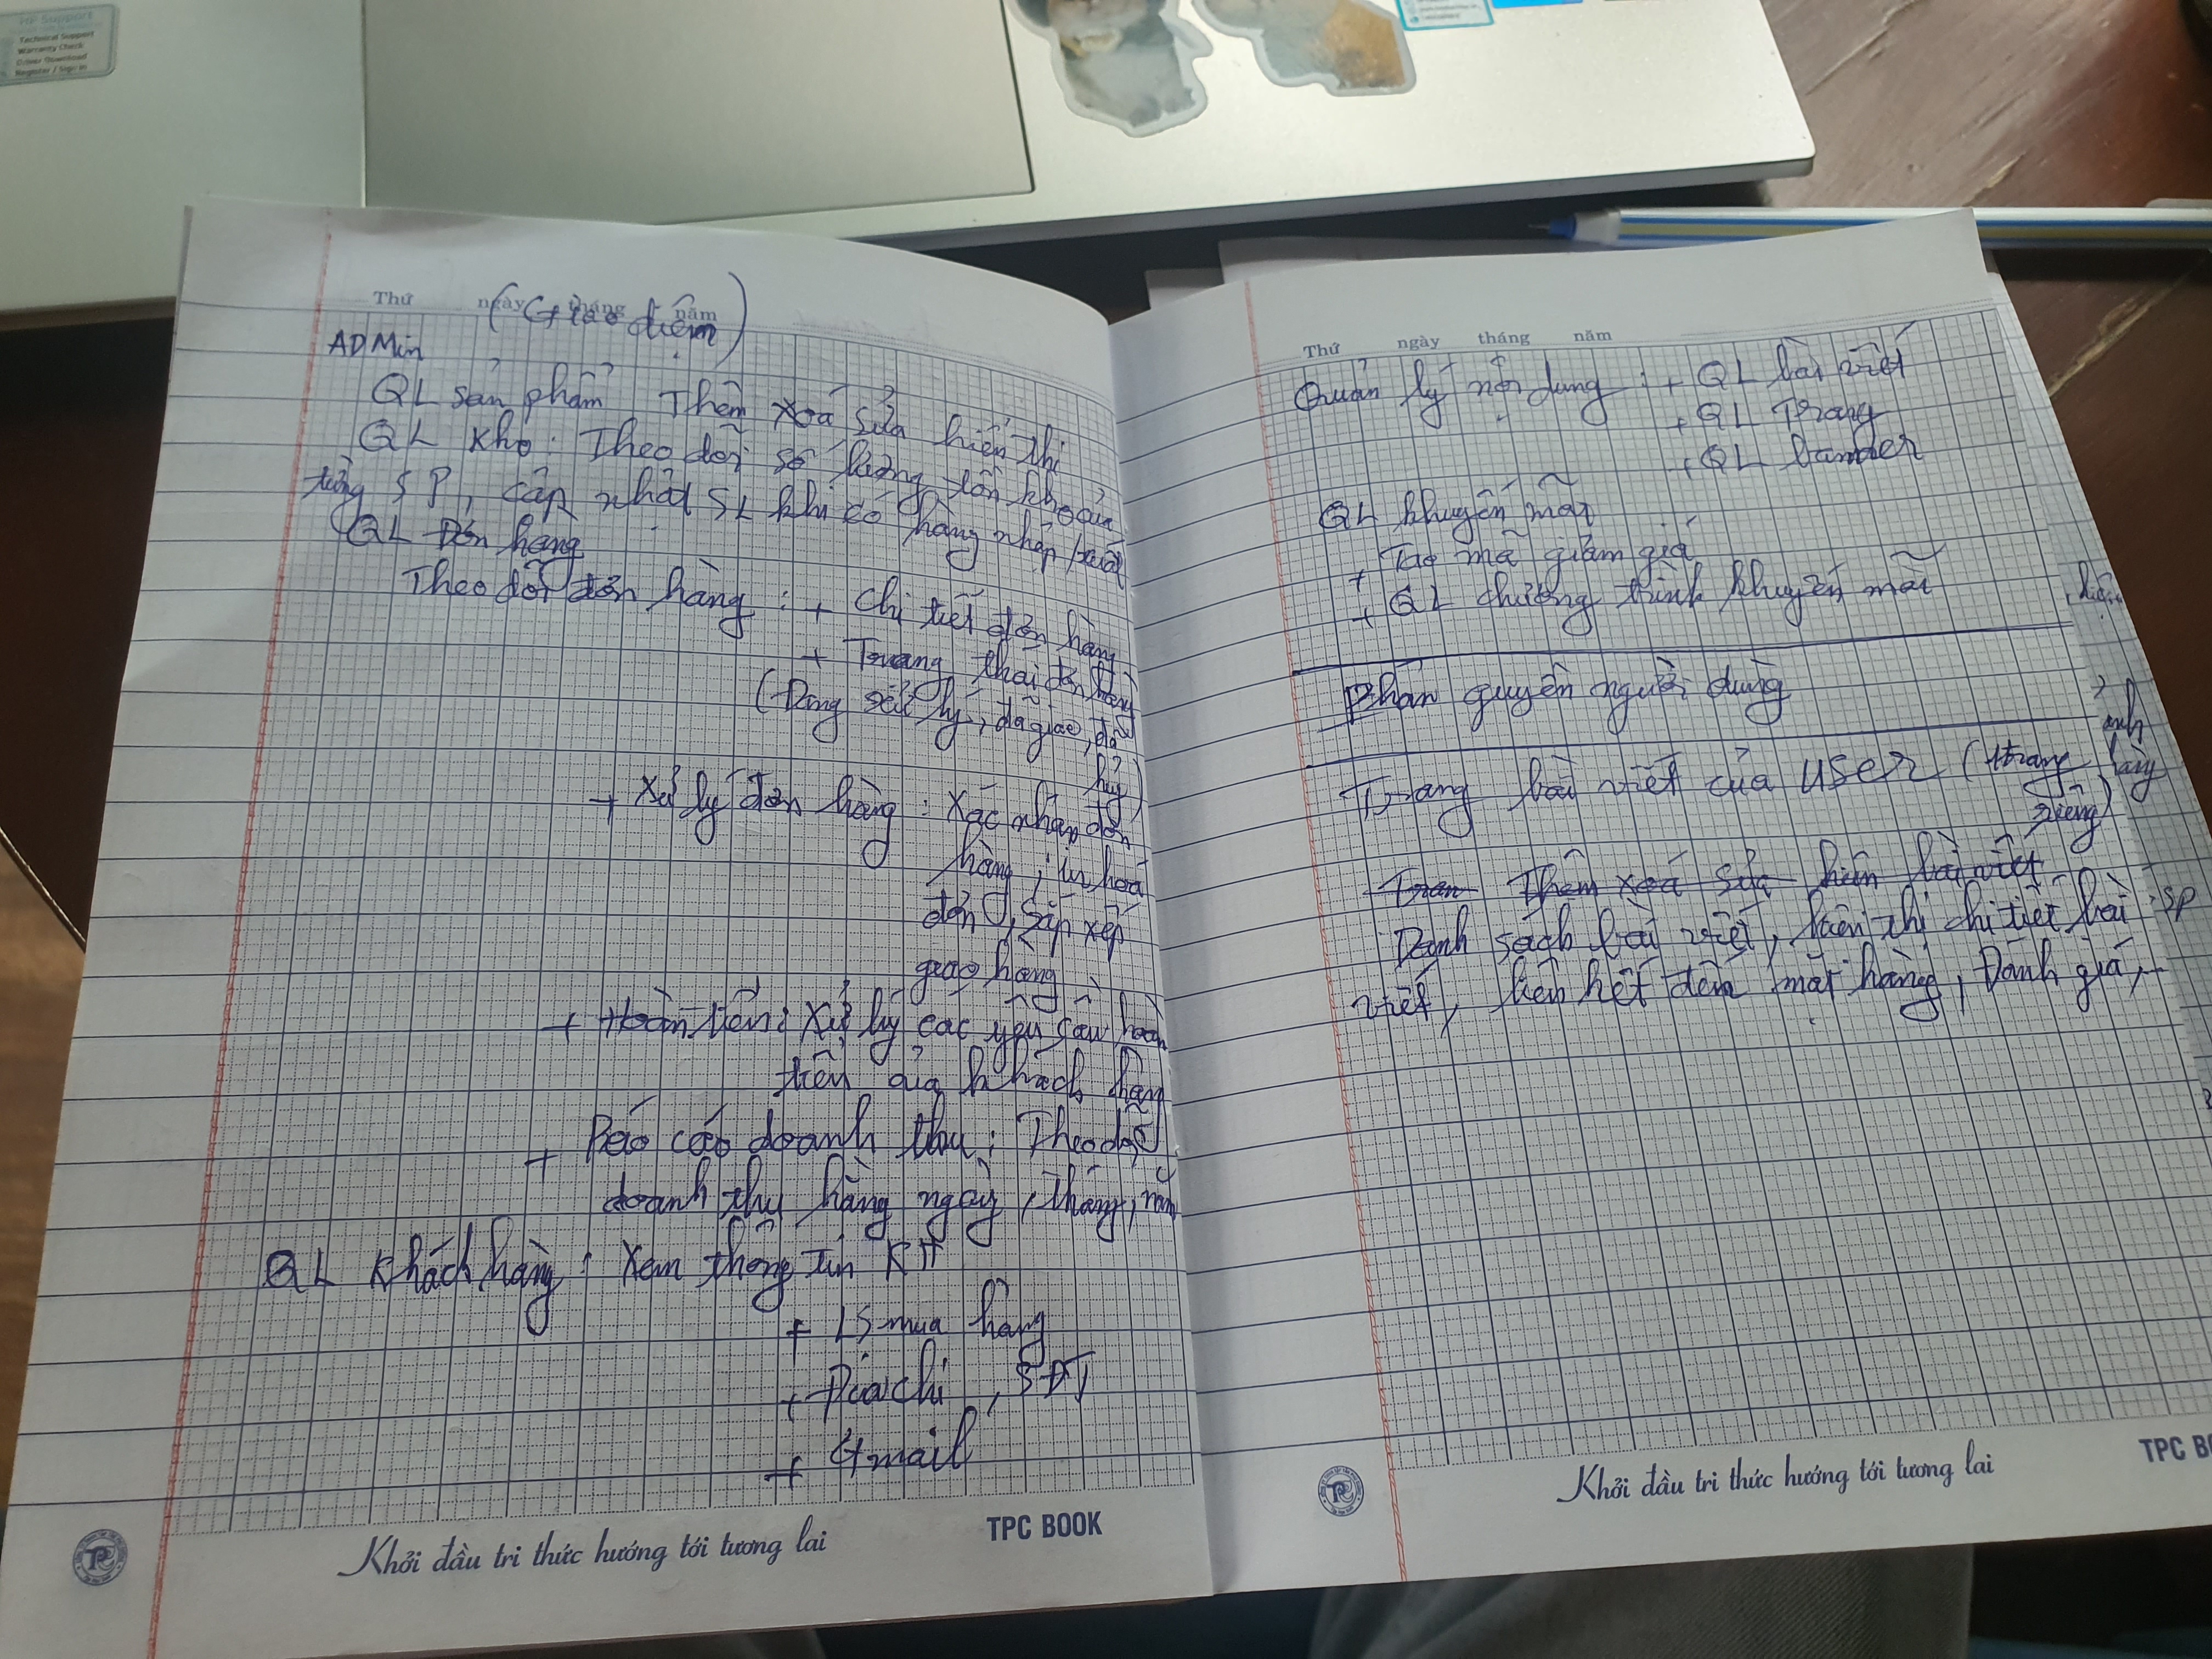 Thứ ngày tháng năm
(Giao diện)
ADMin
QL sản phẩm Thêm xoá sửa hiển thị
QL kho: Theo dõi số lượng tồn kho của
từng SP, cập nhật SL khi có hàng nhập/xuất
QL Đơn hàng:
Theo dõi đơn hàng: + chi tiết đơn hàng
+ Trạng thái đơn hàng
(Đang xử lý, đã giao, đã
huỷ)
+ Xử lý đơn hàng: Xác nhận đơn
hàng, in hoá
đơn, sắp xếp
giao hàng
+ Hoàn tiền: Xử lý các yêu cầu hoàn
tiền của khách hàng
+ Báo cáo doanh thu: Theo dõi
doanh thu hàng ngày, tháng, năm
QL khách hàng: Xem thông tin KH
+ LS mua hàng
+ Địa chỉ, SĐT
+ Gmail
Khơi dâu tri thức hướng tới tương lai
TPC BOOK
Thứ ngày tháng năm
Quản lý nội dung: + QL bài viết
+ QL Trang
+ QL banner
QL khuyến mãi
+ Tạo mã giảm giá
+ QL chương trình khuyến mãi
Phân quyền người dùng
Trang bài viết của USER (trang
riêng)
Thêm xoá sửa hiển bài viết
Danh sách bài viết, hiển thị chi tiết bài
viết, liên kết đến mặt hàng, Đánh giá
SP
Khơi dâu tri thức hướng tới tương lai
TPC